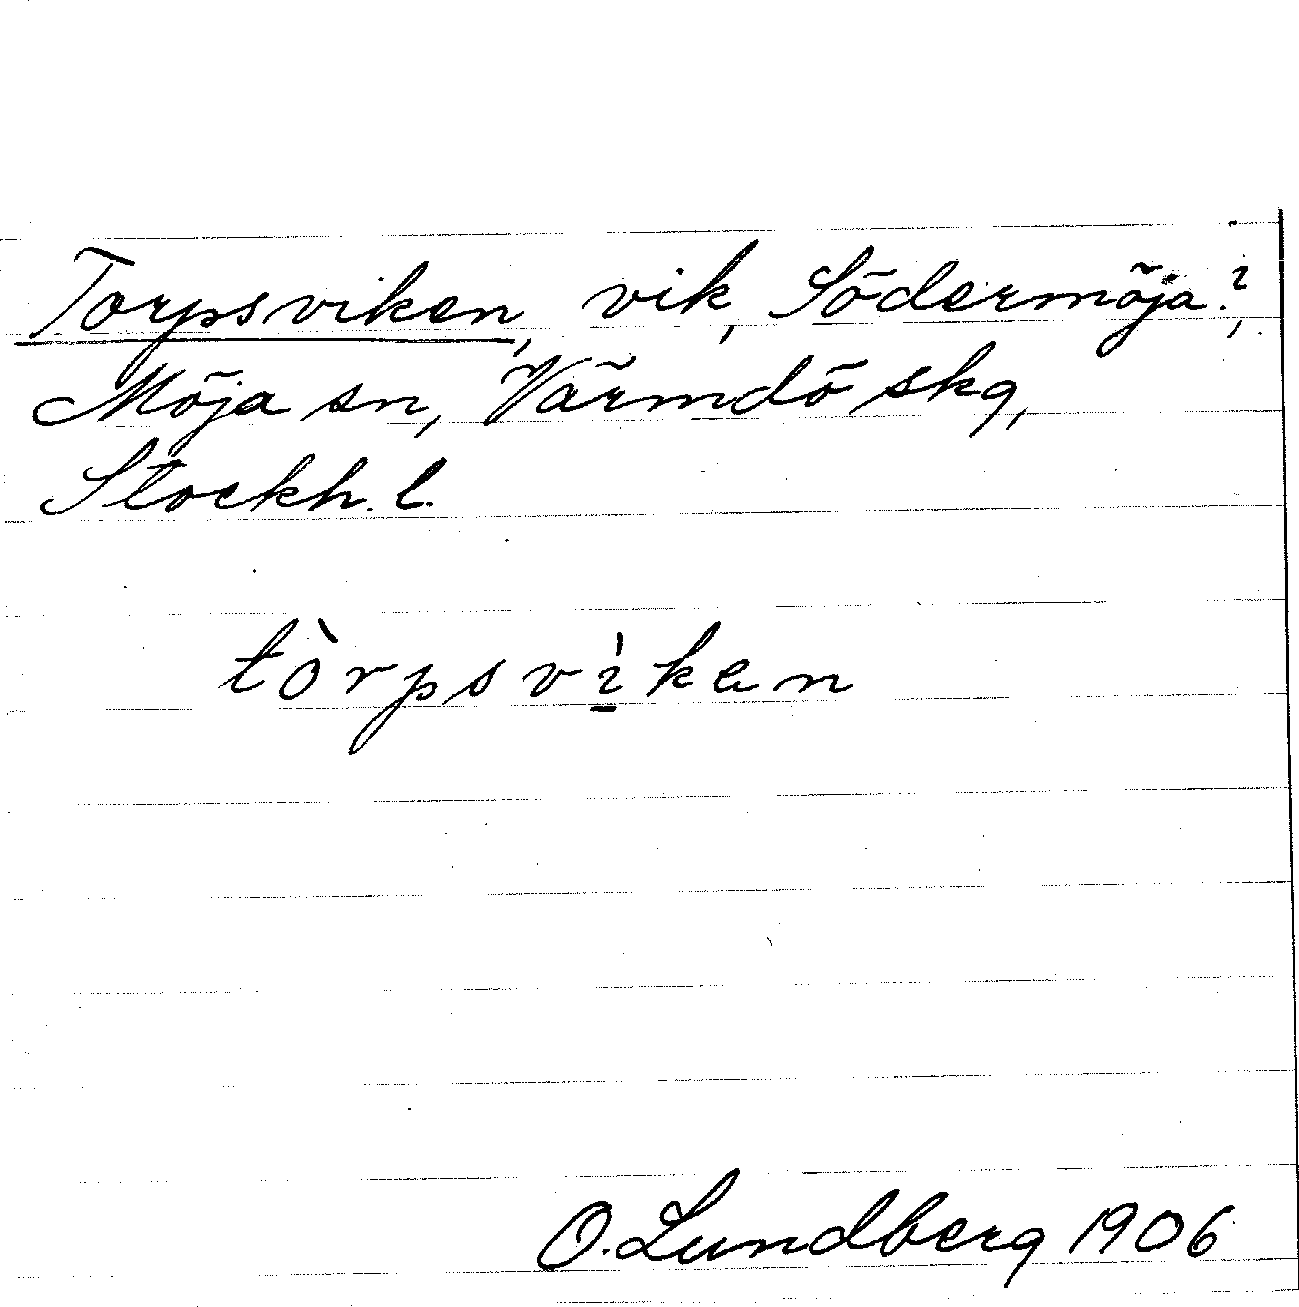 Torpsviken, vik, Södermöja?,
Möja sn, Värmdö skg,
Stockh. l.
tòrpsvi̠ken
O. Lundberg 1906